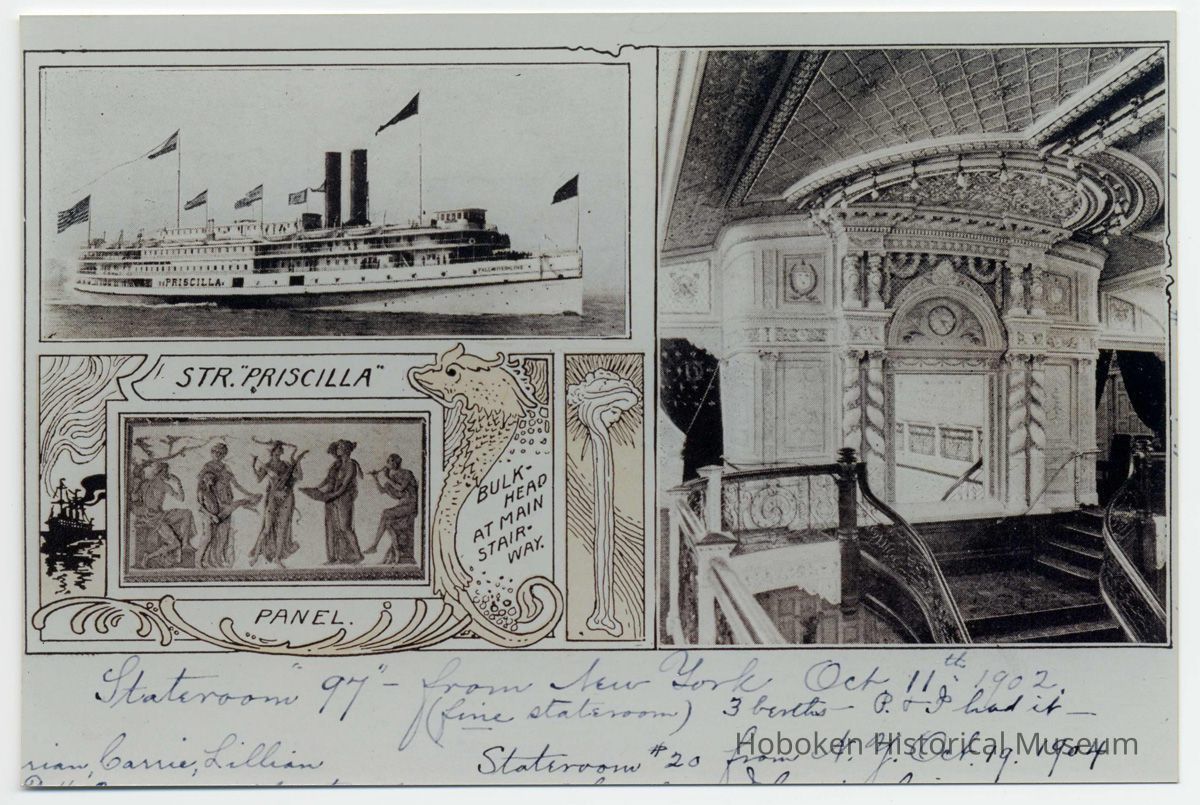 PRISCILLA.
FALL RIVER LINE
STR. "PRISCILLA"
BULK-
HEAD
AT MAIN
STAIR-
WAY.
PANEL.
Stateroom "97" - from New York Oct 11th 1902.
(fine stateroom) 3 berths - P. & I had it -
rian, Carrie, Lillian
Stateroom #20 from N.Y. Oct. 19. 1904
Hoboken Historical Museum